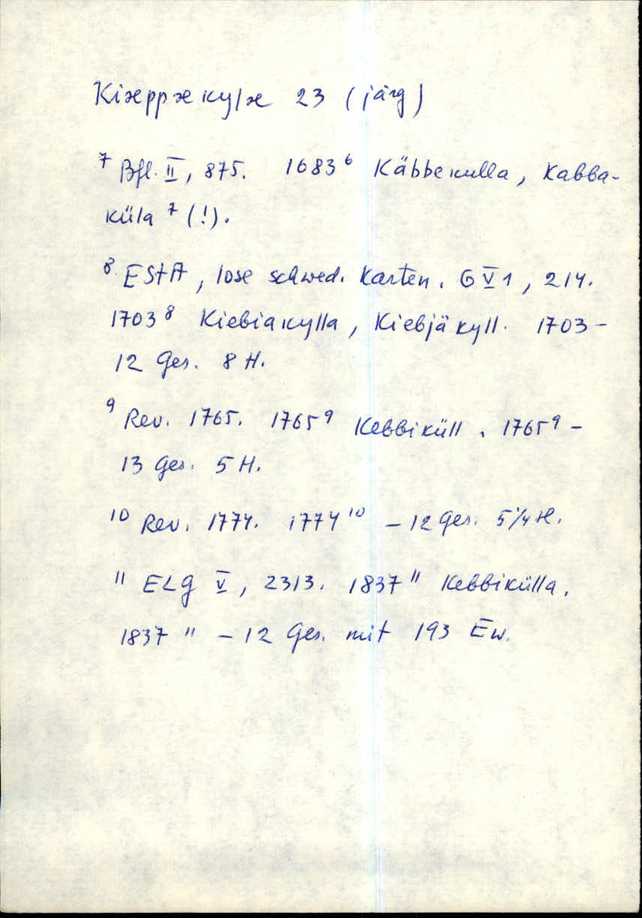 Kiæppæ kylæ 23 (järg)
⁷ Bfl. II, 875. 1683⁶ Käbbekulla, Kabba-
küla ⁷ (!).
⁸ EStA, lose schwed. Karten. G V 1, 214.
1703⁸ Kiebiakylla, Kiebjäkyll. 1703 –
12 Ges. 8 H.
⁹ Rev. 1765. 1765⁹ Kebbiküll. 1765⁹ –
13 Ges. 5 H.
¹⁰ Rev. 1774. 1774¹⁰ – 12 Ges. 5 ¼ H.
¹¹ ELG V, 2313. 1837¹¹ Kebbikülla.
1837¹¹ – 12 Ges. mit 193 Ew.